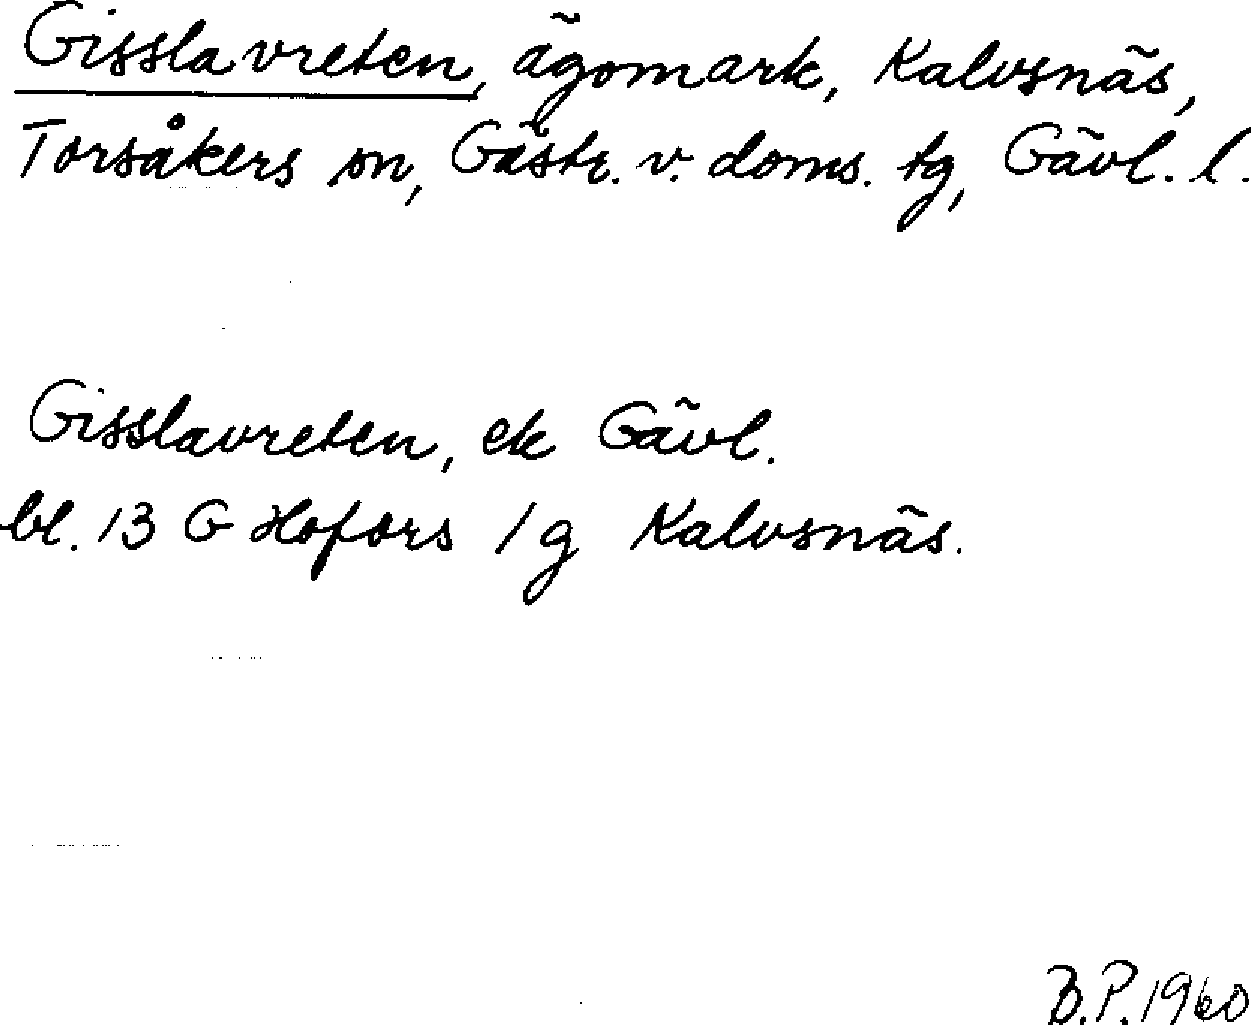 Gisslavreten, ägomark, Kalvsnäs,
Torsåkers sn, Gästr. v. doms. tg, Gävl. l.
Gisslavreten, ek Gävl.
bl. 13 G Hofors 1 g Kalvsnäs.
B.P. 1960